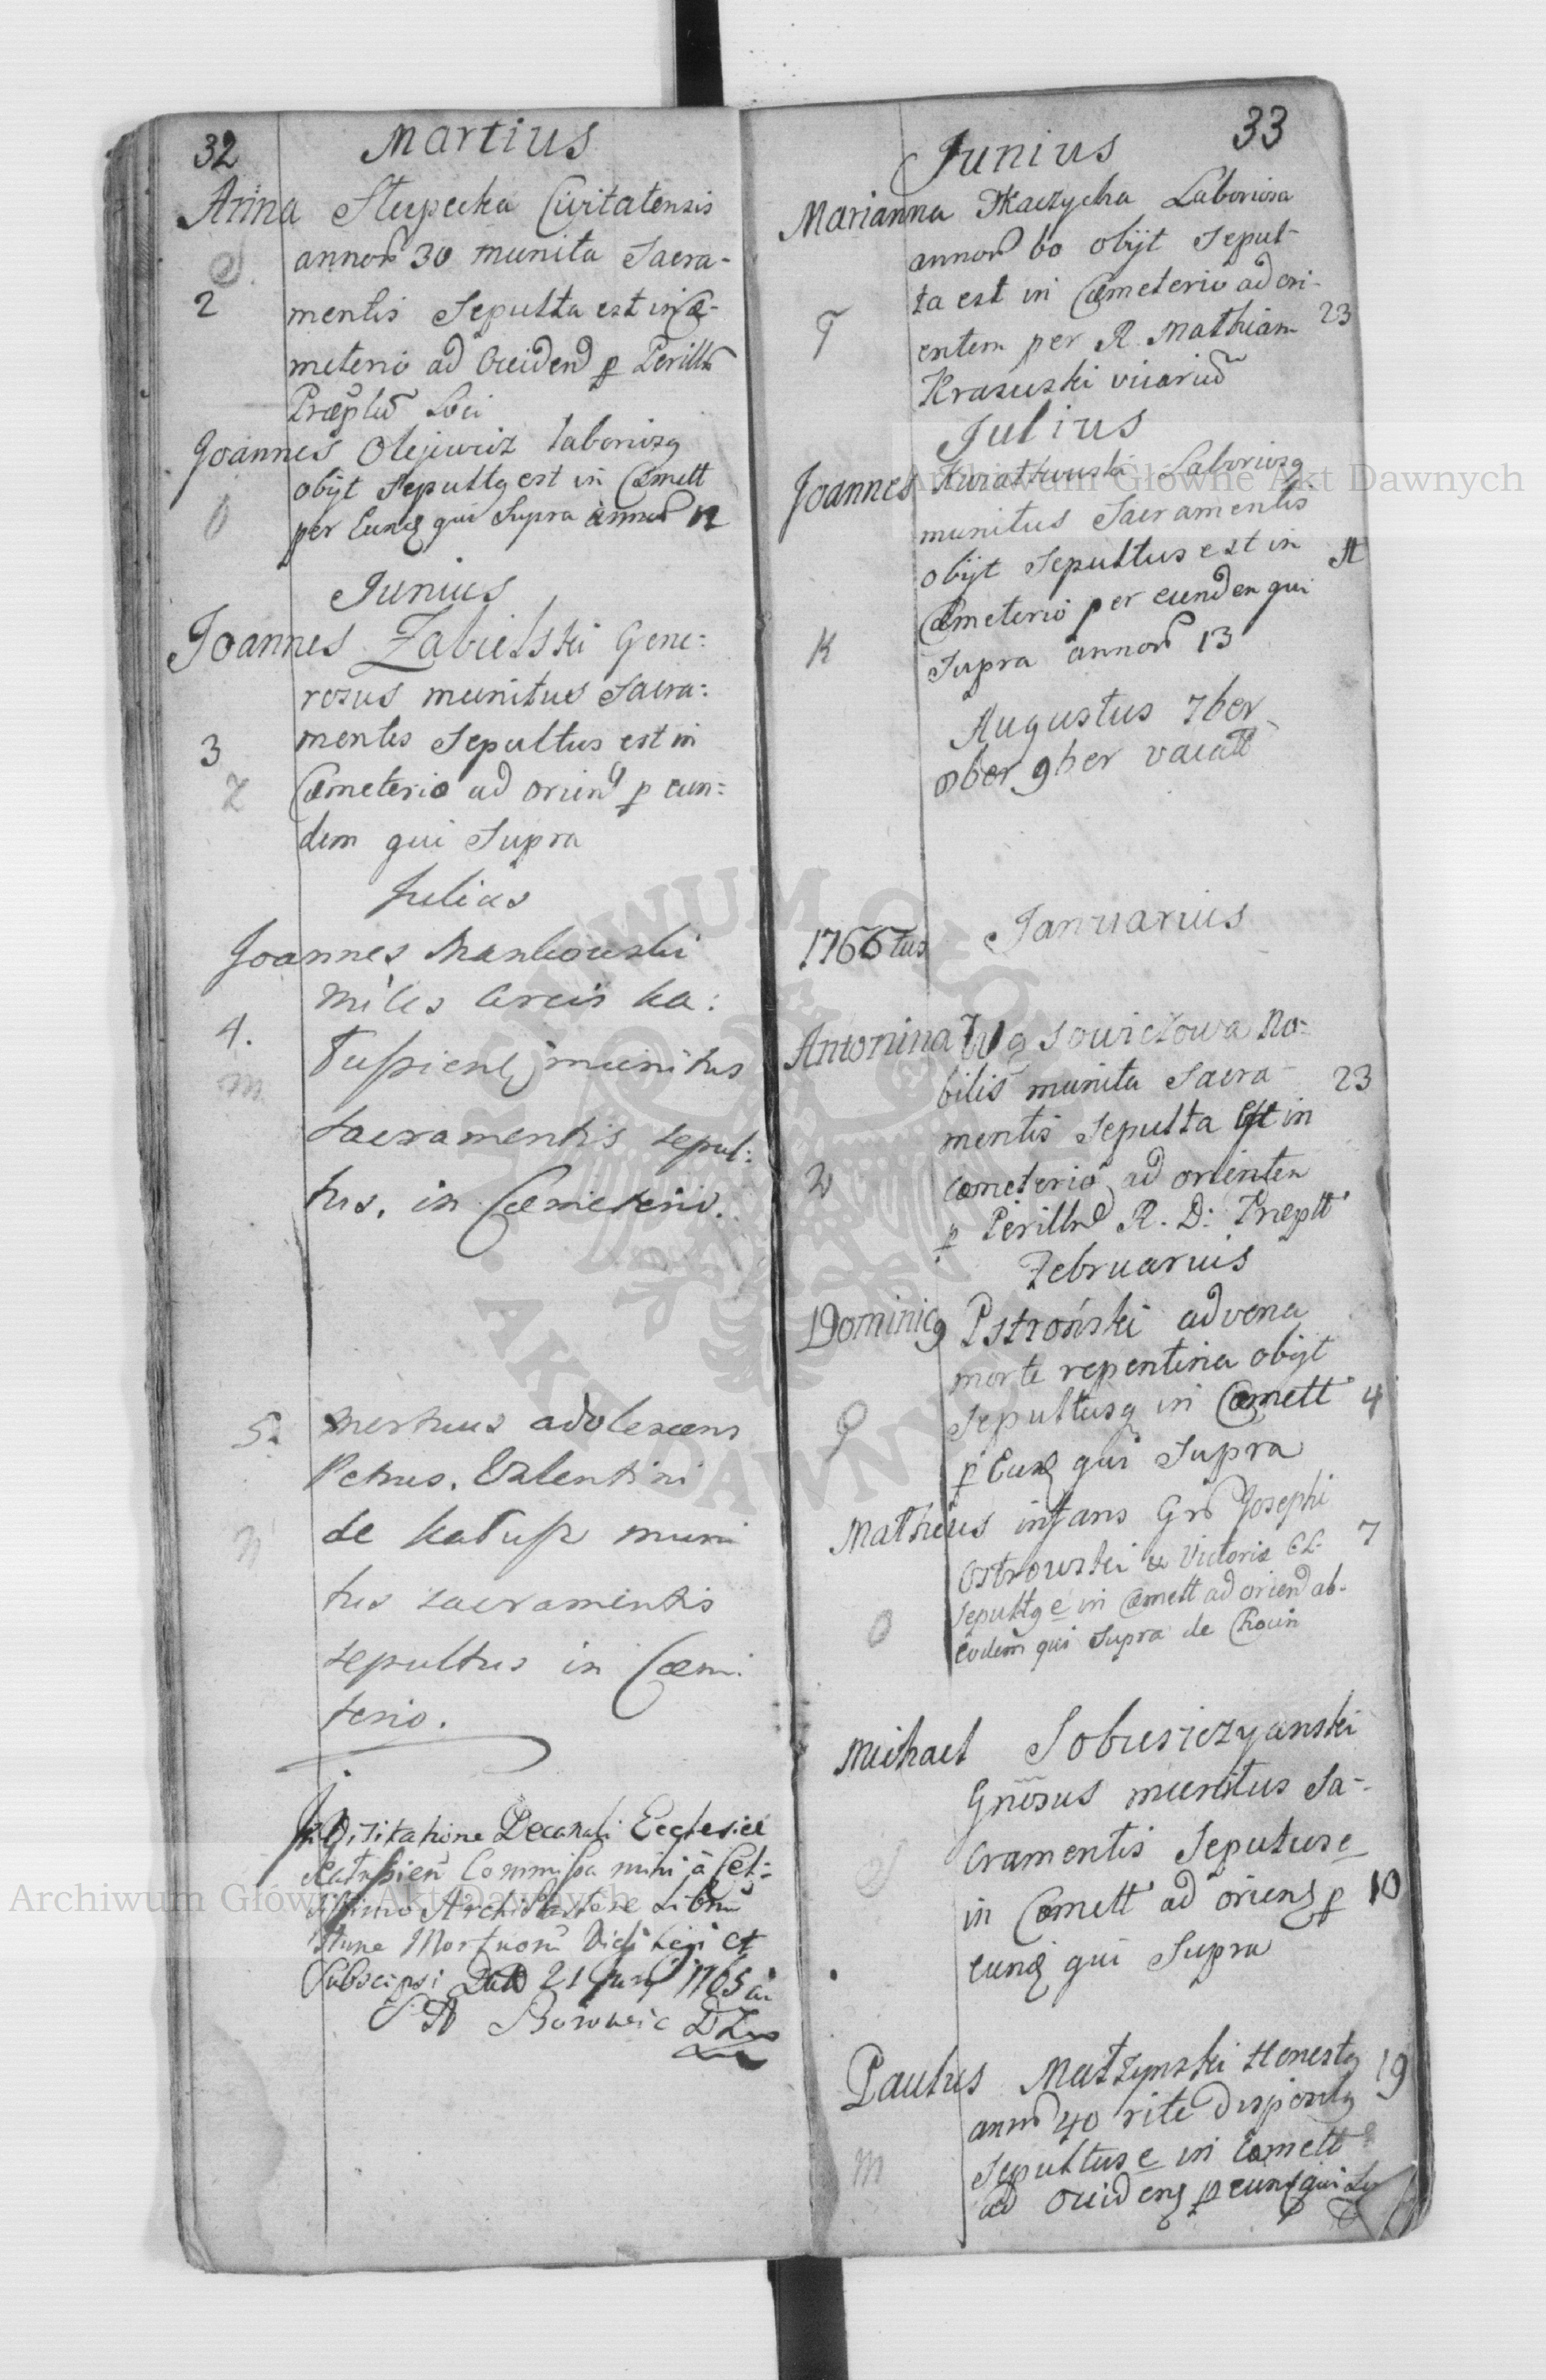 32
Martius
Anna Slupecka Civitatensis
S.
annor 30 munita Sacra-
2
mentis Sepulta est in Cæ-
meterio ad Occidend p Perillu
Præptu Loci
Joannes Olejewicz laborios9
obijt Sepult9 est in Cæmett
O
per Eund qui Supra annor 12
Junius
Joannes Zabielski Gene:
rosus munitus Sacra:
mentis Sepultus est in
3
Cæmeterio ad orien p eun:
Z
dem qui Supra
Julius
Joannes Mankowski
miles Arcis Ka:
4.
tuszien munitus
m
sacramentis sepul:
tus, in Cæmeterio.
5.
mortuus adolescens
Petrus. Valentini
de Katusz muni
N
tus sacramentis
sepultus in Cæmi
terio.
In Visitatione Decanali Ecclesiæ
Katuszien Commissa mihi à Cel:
sissimo Archi Pastore Librum
Mortuoru Vidi legi et
Subscripsi Dat 21 Juny 1765 a
33
Junius
Marianna Tkaczycha Laboriosa
annor 60 obijt Sepul-
ta est in Cæmeterio ad ori-
T
entem per R. Mathiam 23
Krasuski vicariu
Julius
Joannes Kwiatkowski Laborios9
munitus Sacramentis
obijt Sepultus est in
Cæmeterio per eundem qui
K
Supra annor 13
Augustus 7ber
8ber 9ber vacatt
1766tus Januarius
Antonina Wąsowiczowa No-
bilis munita Sacra- 23
mentis Sepulta est in
W
cœmeterio ad orientem
p Perillu R. D: Præptt
Februarius
Dominic9 Pstroński advena
morte repentina obijt
Sepultus9 in Cæmett 4
P
p Eund qui Supra
Matheus infans Gr Josephi
Ostrowski & Victoriæ CL. 7
Sepult9 e in Cæmett ad oriend ab-
O
eodem qui Supra de Choin
Michael Sobusiczyanski
Gnosus munitus Sa-
S
cramentis Sepultus e
in Cæmett ad oriens p 10
eund qui Supra
Paulus Matzynski Honest9 19
annor 40 rite disposit9
m
Sepultus e in Cæmett
ad occidens p eund qui Su
Archiwum Główne Akt Dawnych
Archiwum Główne Akt Dawnych
ARCHIWUM GŁÓWNE AKT DAWNYCH